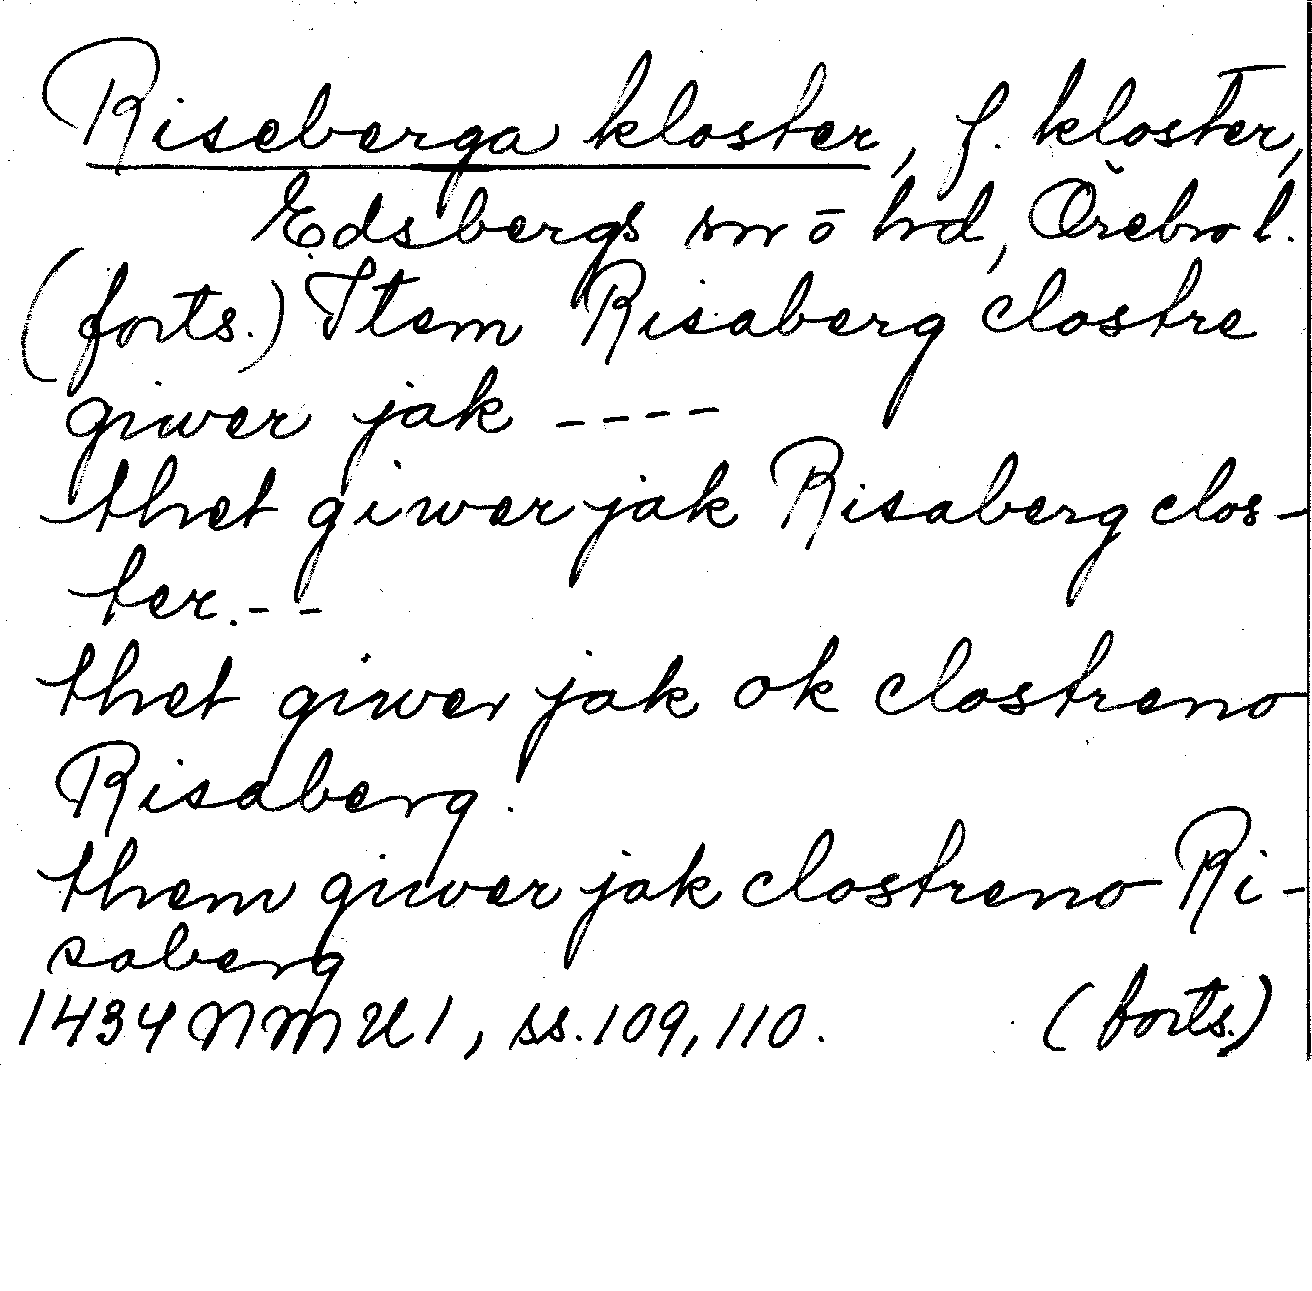 Riseberga kloster, f. kloster,
Edsbergs sn o hd, Örebro l.
(forts.) Item Risaberg clostre
giwer jak ----
thet giwer jak Risaberg clos-
ter.--
thet giwer jak ok clostreno
Risaberg.
them giwer jak clostreno Ri-
saberg
1434 NMU1, ss. 109, 110. (forts.)